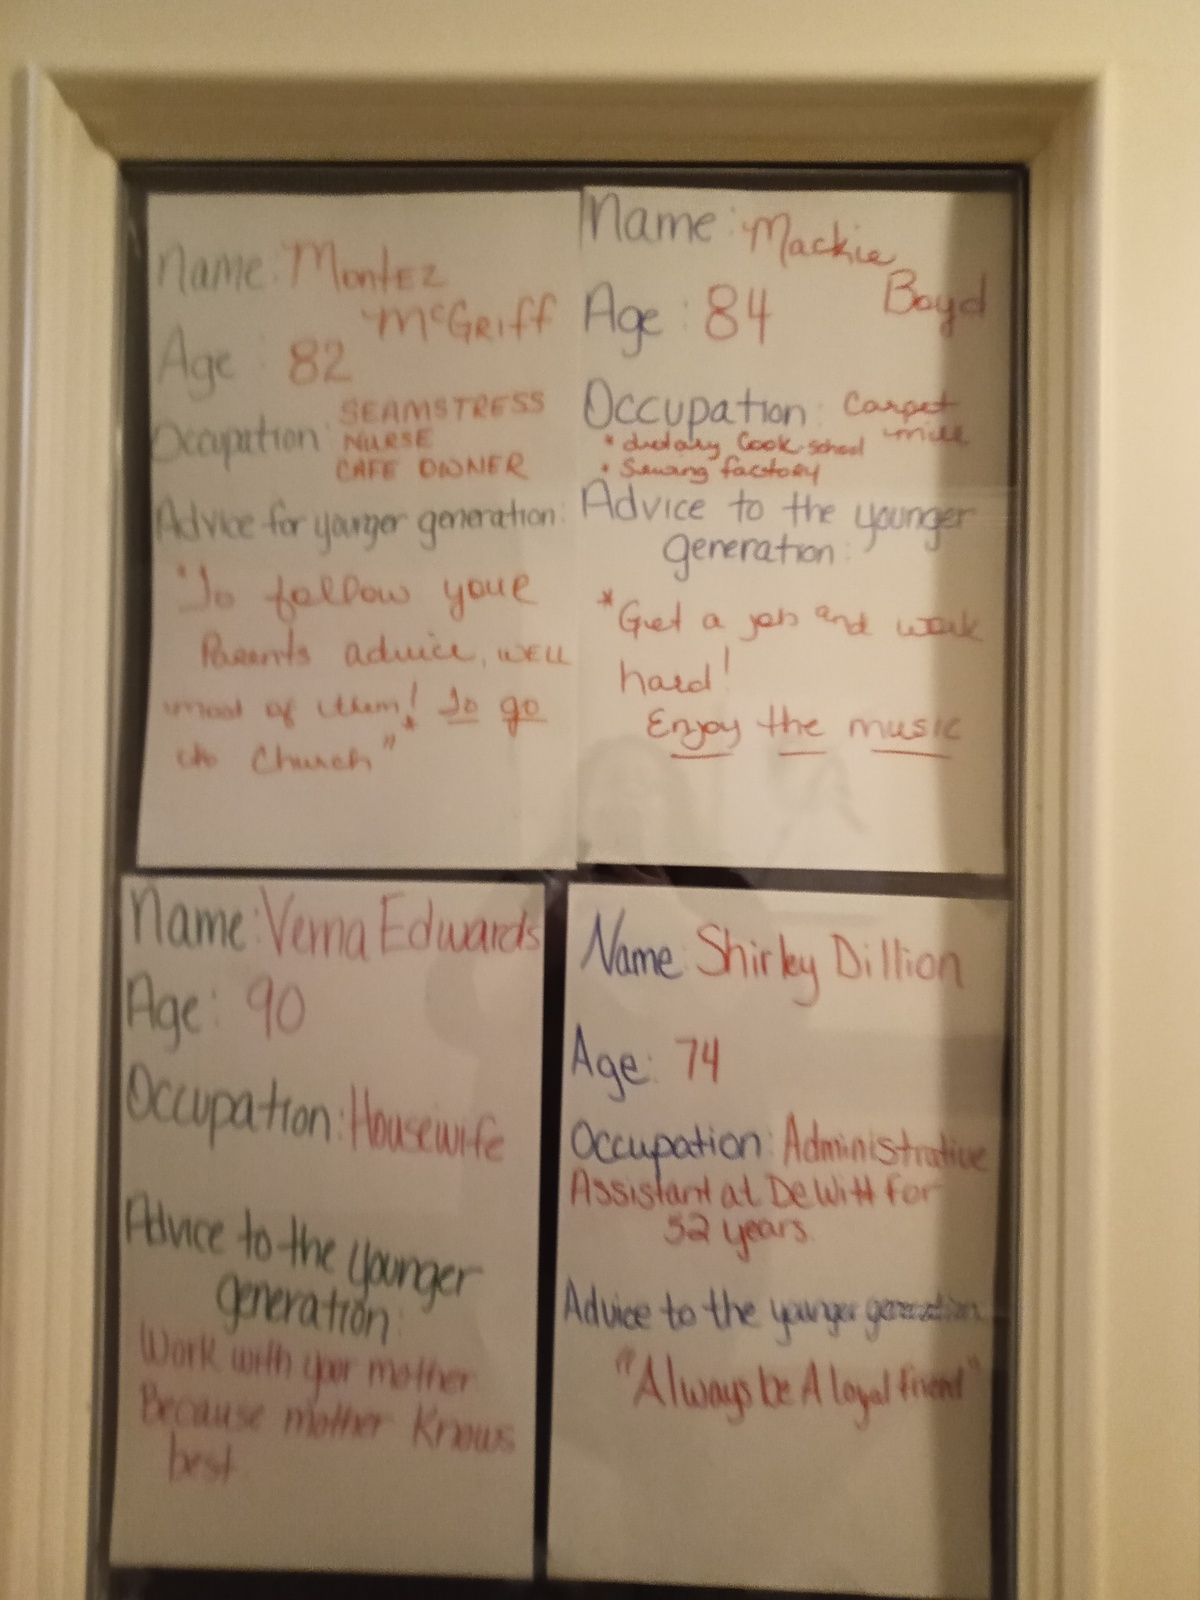 Name: Montez
McGriff
Age : 82
Occupation: SEAMSTRESS
NURSE
CAFE OWNER
Advice for younger generation:
"To follow your
Parents advice, well
most of them! * To go
to Church"
Name: Mackie
Boyd
Age : 84
Occupation: Carpet
mill
* dietary Cook school
* Sewing factory
Advice to the younger
generation:
*Get a job and work
hard!
Enjoy the music
Name: Verna Edwards
Age: 90
Occupation: Housewife
Advice to the younger
generation:
Work with your mother
Because mother Knows
best
Name: Shirley Dillion
Age: 74
Occupation: Administrative
Assistant at DeWitt for
52 years.
Advice to the younger generation
"Always be A loyal friend"